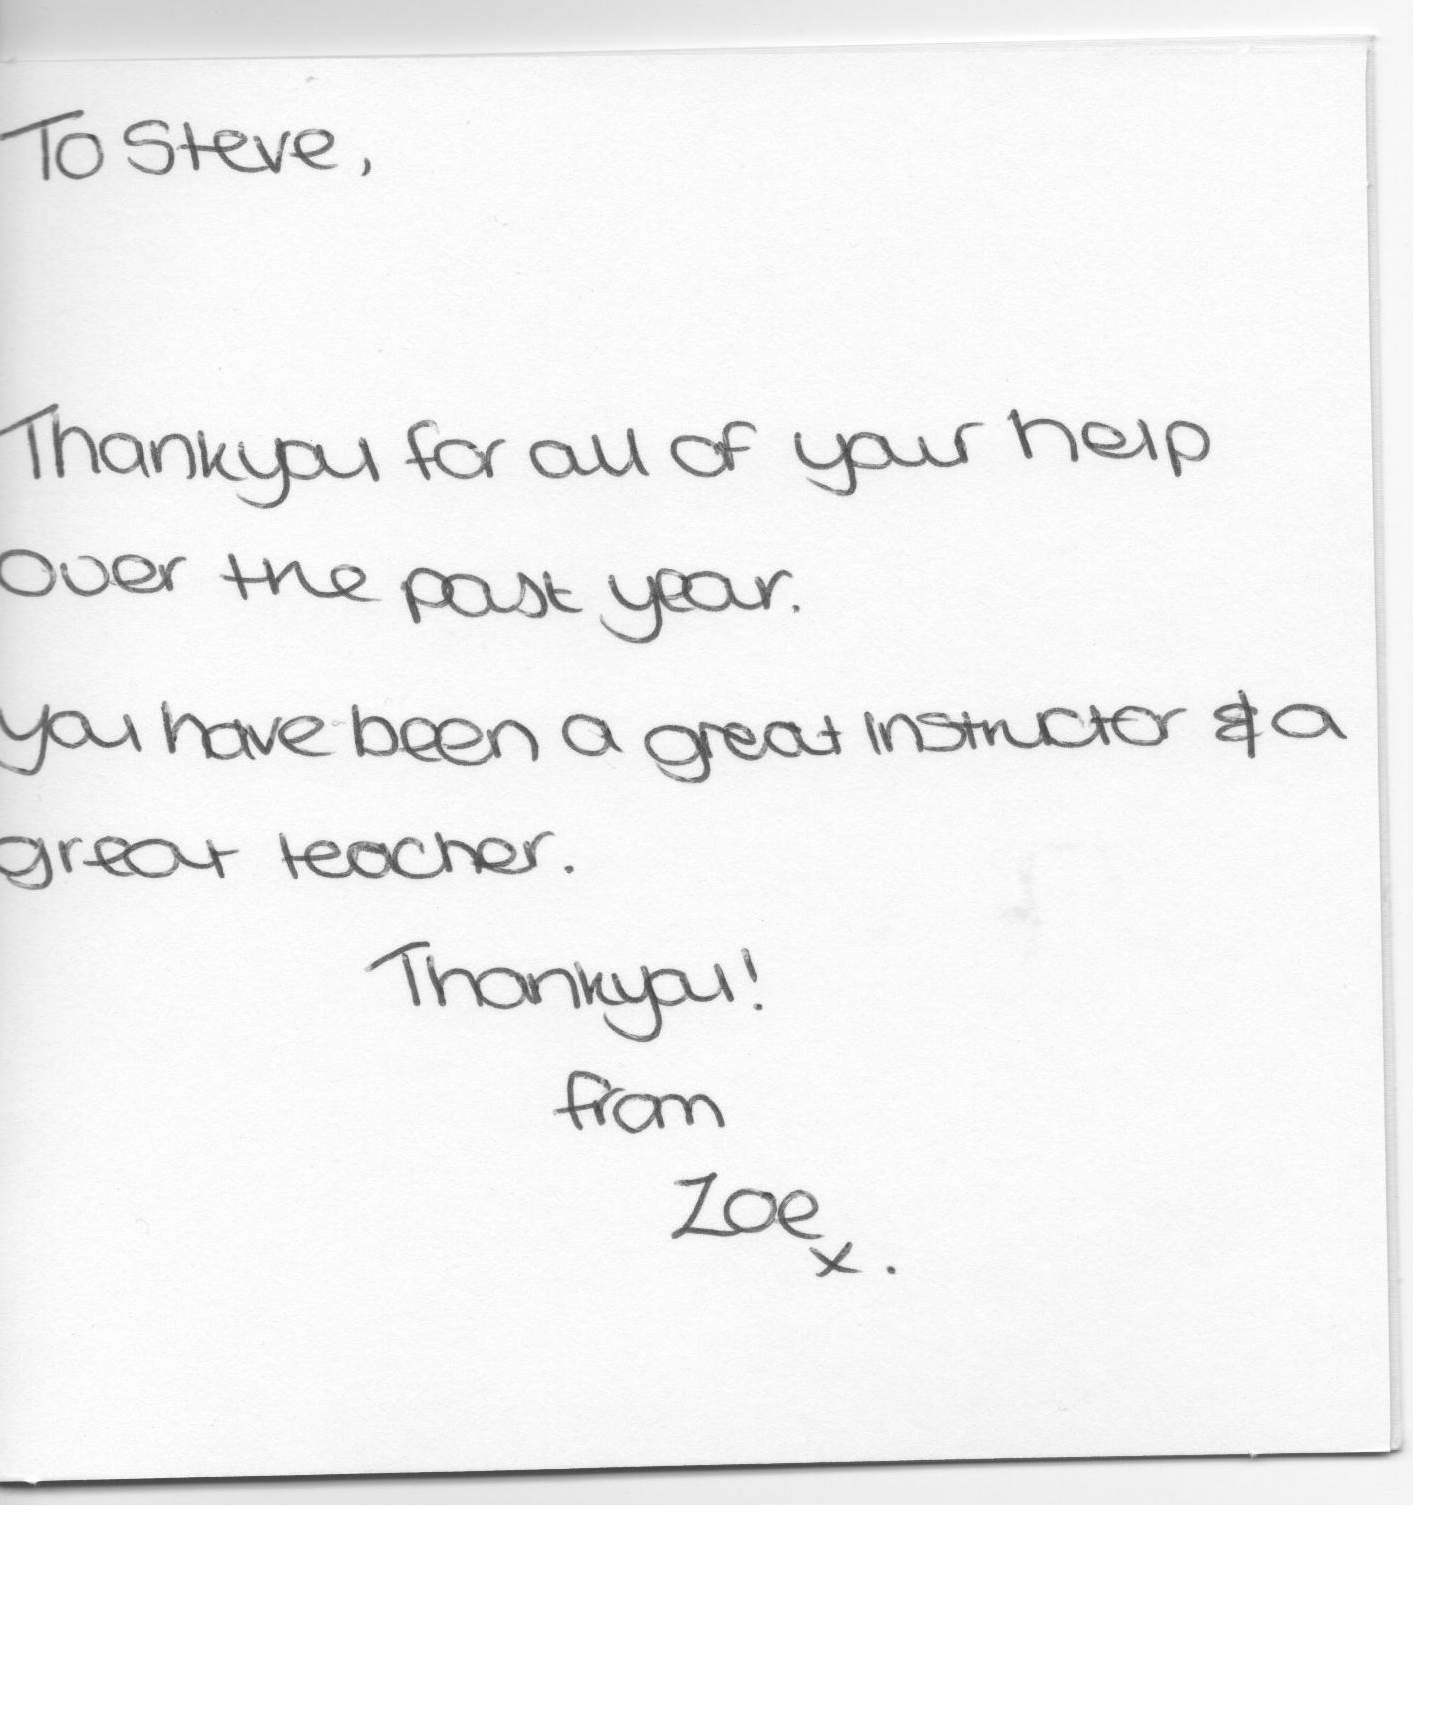 To Steve,
Thankyou for all of your help
over the past year.
you have been a great instructor & a
great teacher.
Thankyou!
from
Zoe
x.